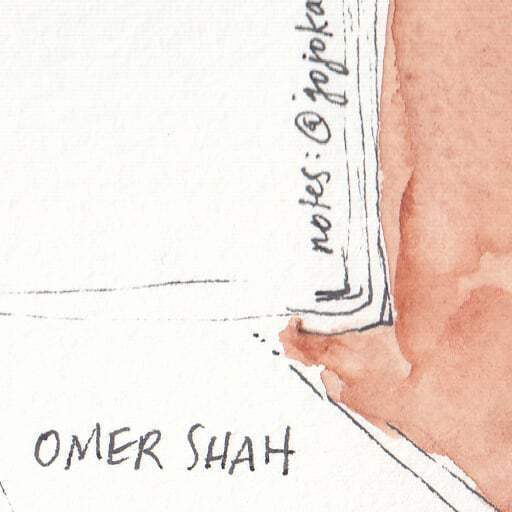 notes: @jojoka
OMER SHAH